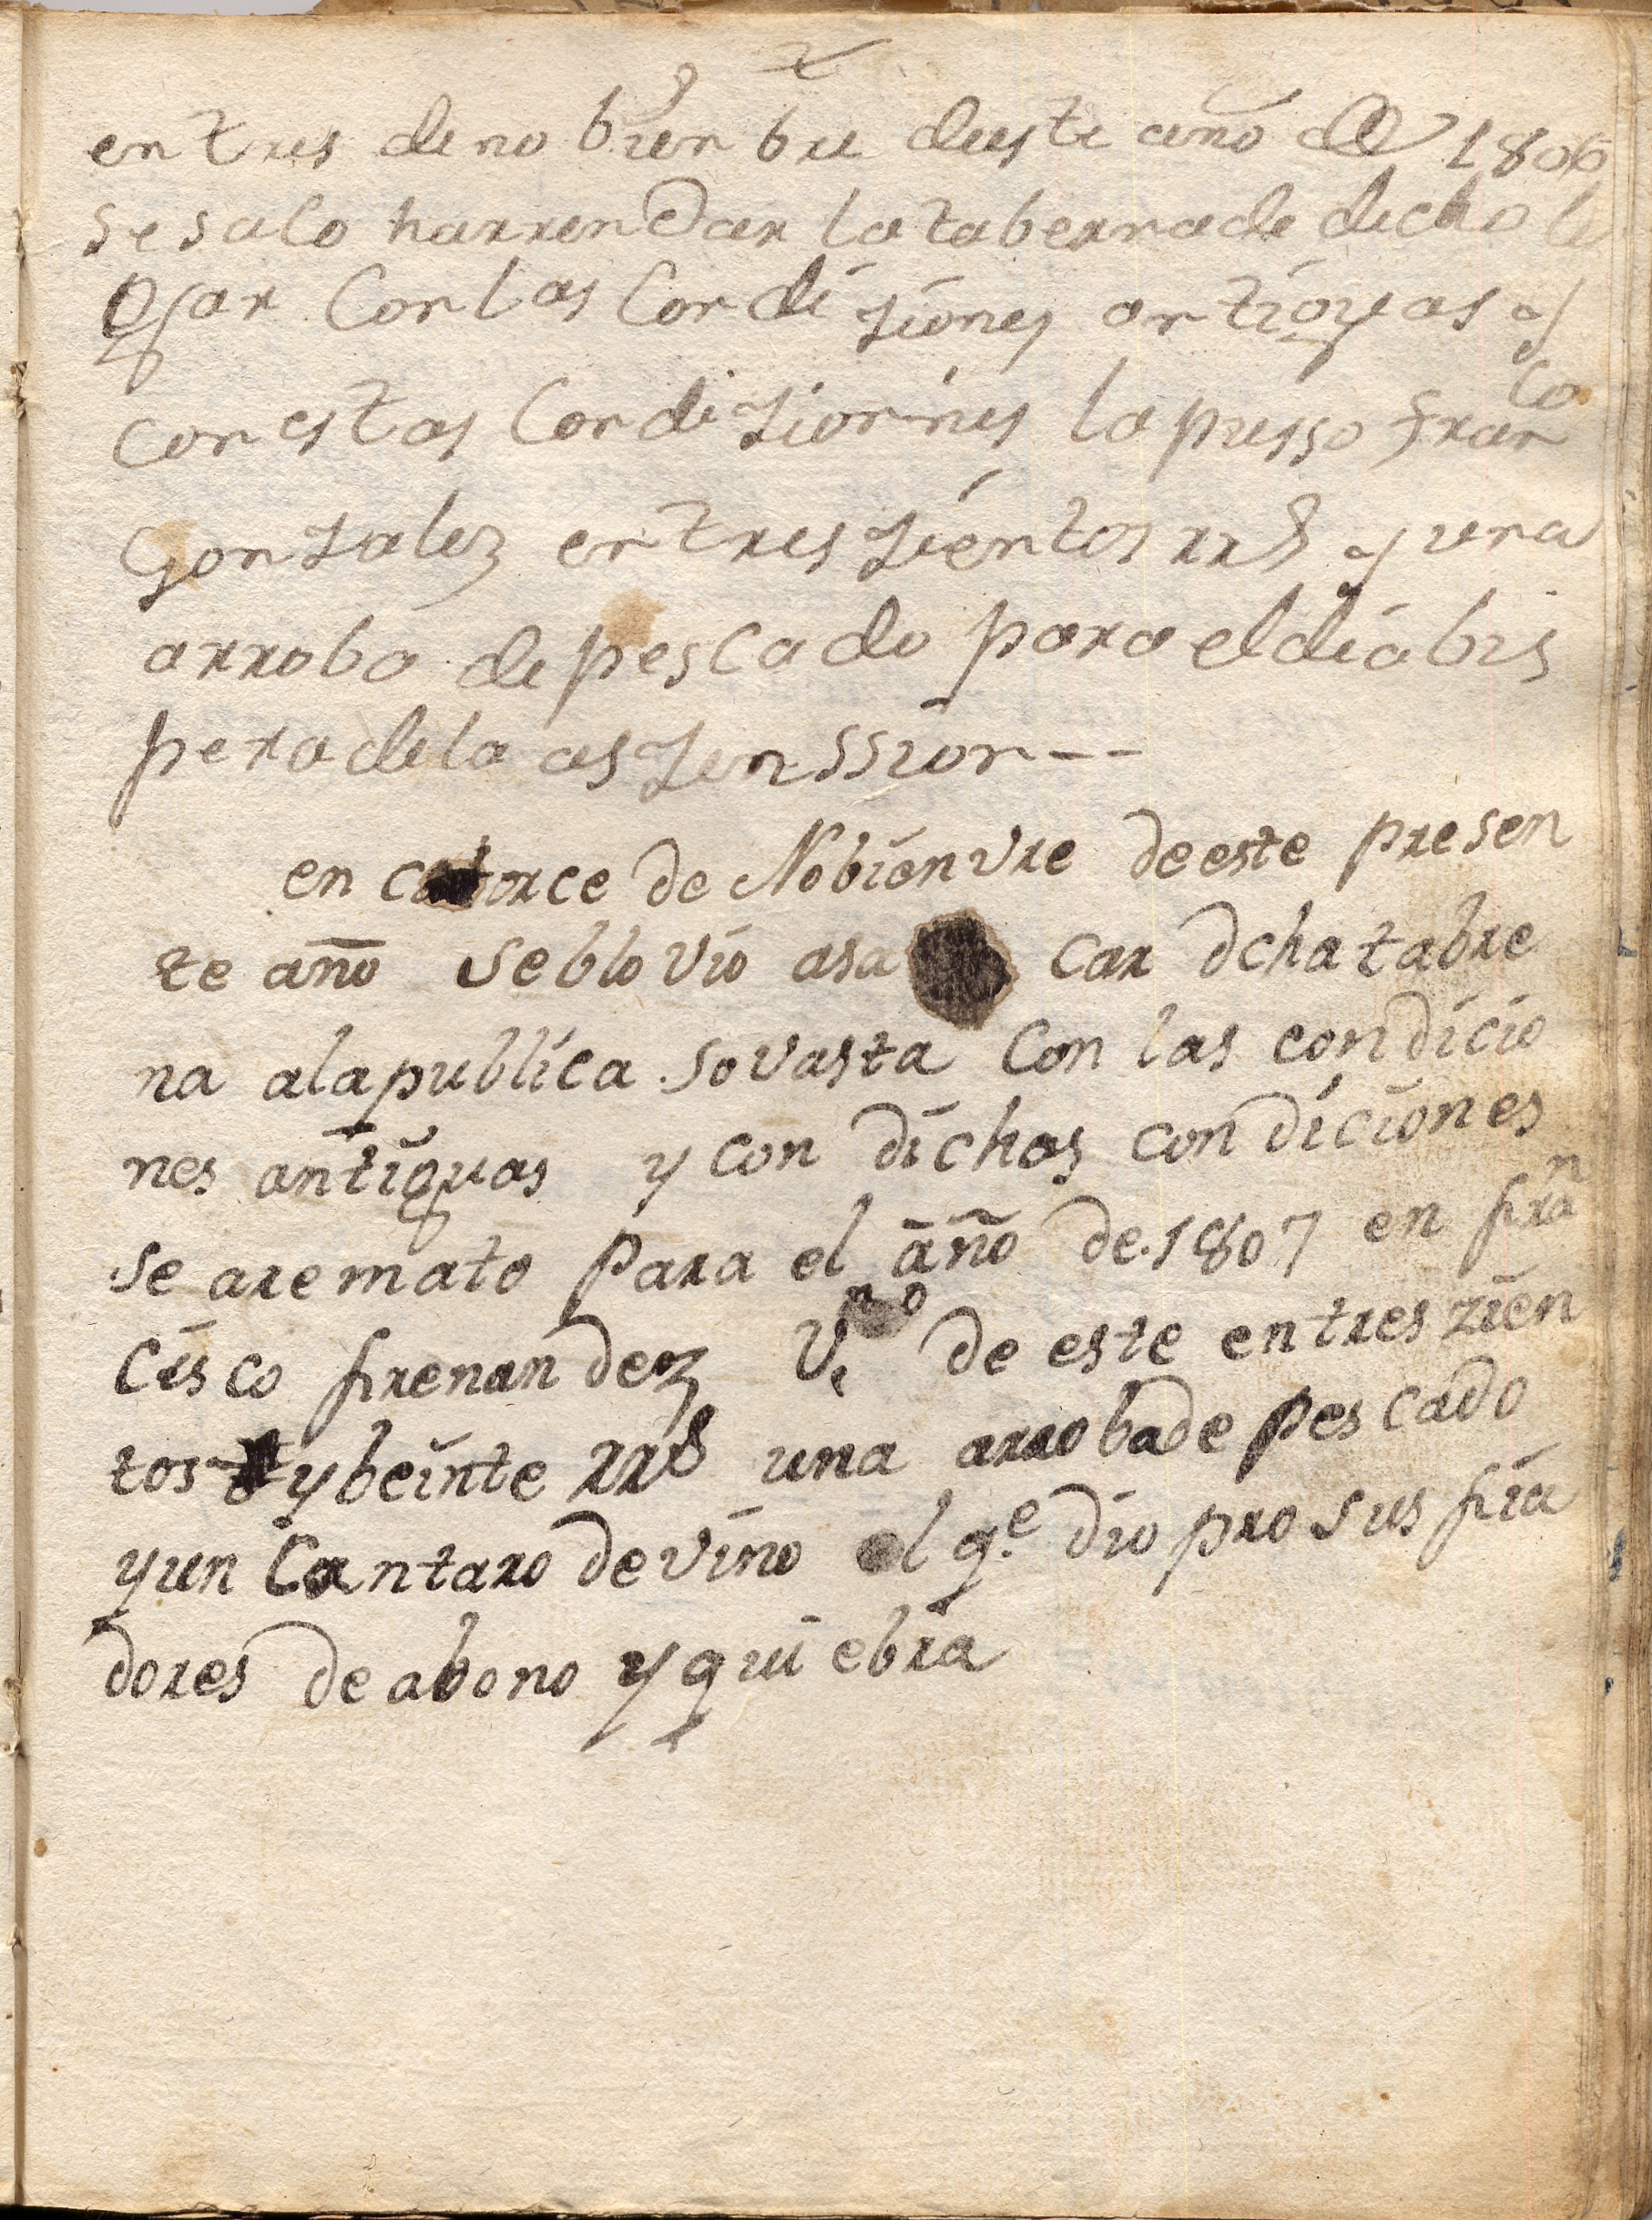 en tres de no bien bre deeste año de 1806
se salo harrendar la taberna de dicho lu
gar Con las Condi ziones antiguas y
con estas Condizionnes la pusso fran^co
Gonzalez en tres zientos rr^s y una
arroba de pescado para el dia bis
pera de la aszenssion --
en catorce de Nobienvre de este presen
te año se blo vio asa car dcha tabre
na ala publica sovasta Con las condicio
nes antiguas y con dichas condiciones
se aremato Para el año de 1807 en fran
Cisco frenandez V^no de este en tres zien
tos y beinte rr^s una arroba de pescado
y un Cantaro de vino el q.^e dio pro sus fia
dores de abono y quiebra